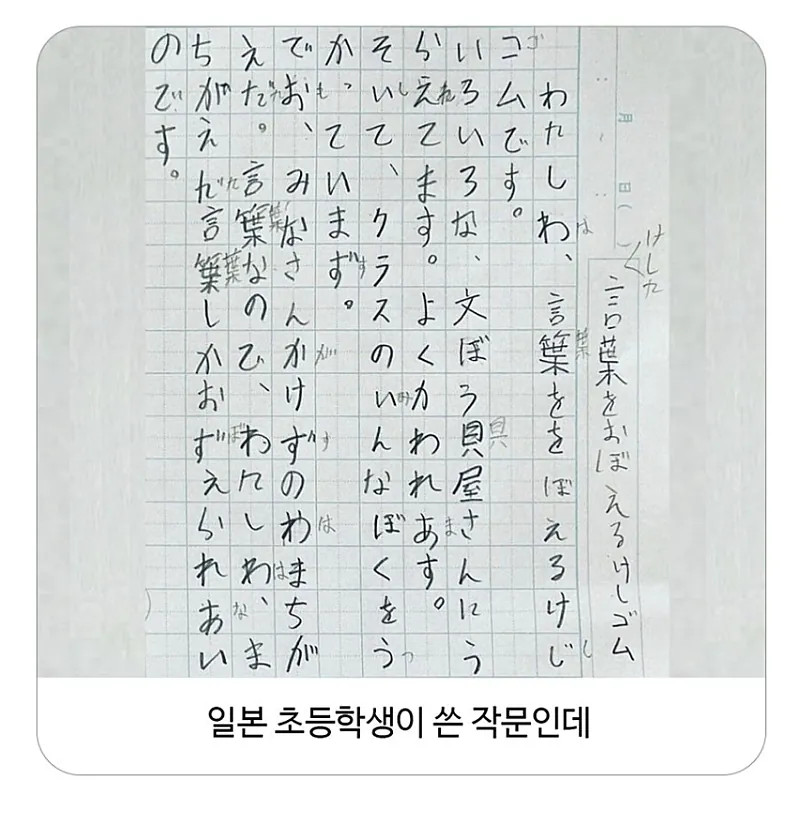 月 日( )
けした
言葉をおぼえるけしゴム
わたしわ、言葉ををぼえるけじ
は 葉 し
コムです。
ゴ
いろいろな、文ぼう貝屋さんにう
具
らえてます。よくかわれあす。
れ ま
そいて、クラスのいんなぼくをう
し み っ
か、ていまず。
っ す
でお、みなさんかけずのわまちが
も が す は
えだ。言葉なので、わたしわ、ま
た 葉 は
ちがえだ言葉しかおずえられあい
た 葉 ぼ な
のです。
일본 초등학생이 쓴 작문인데